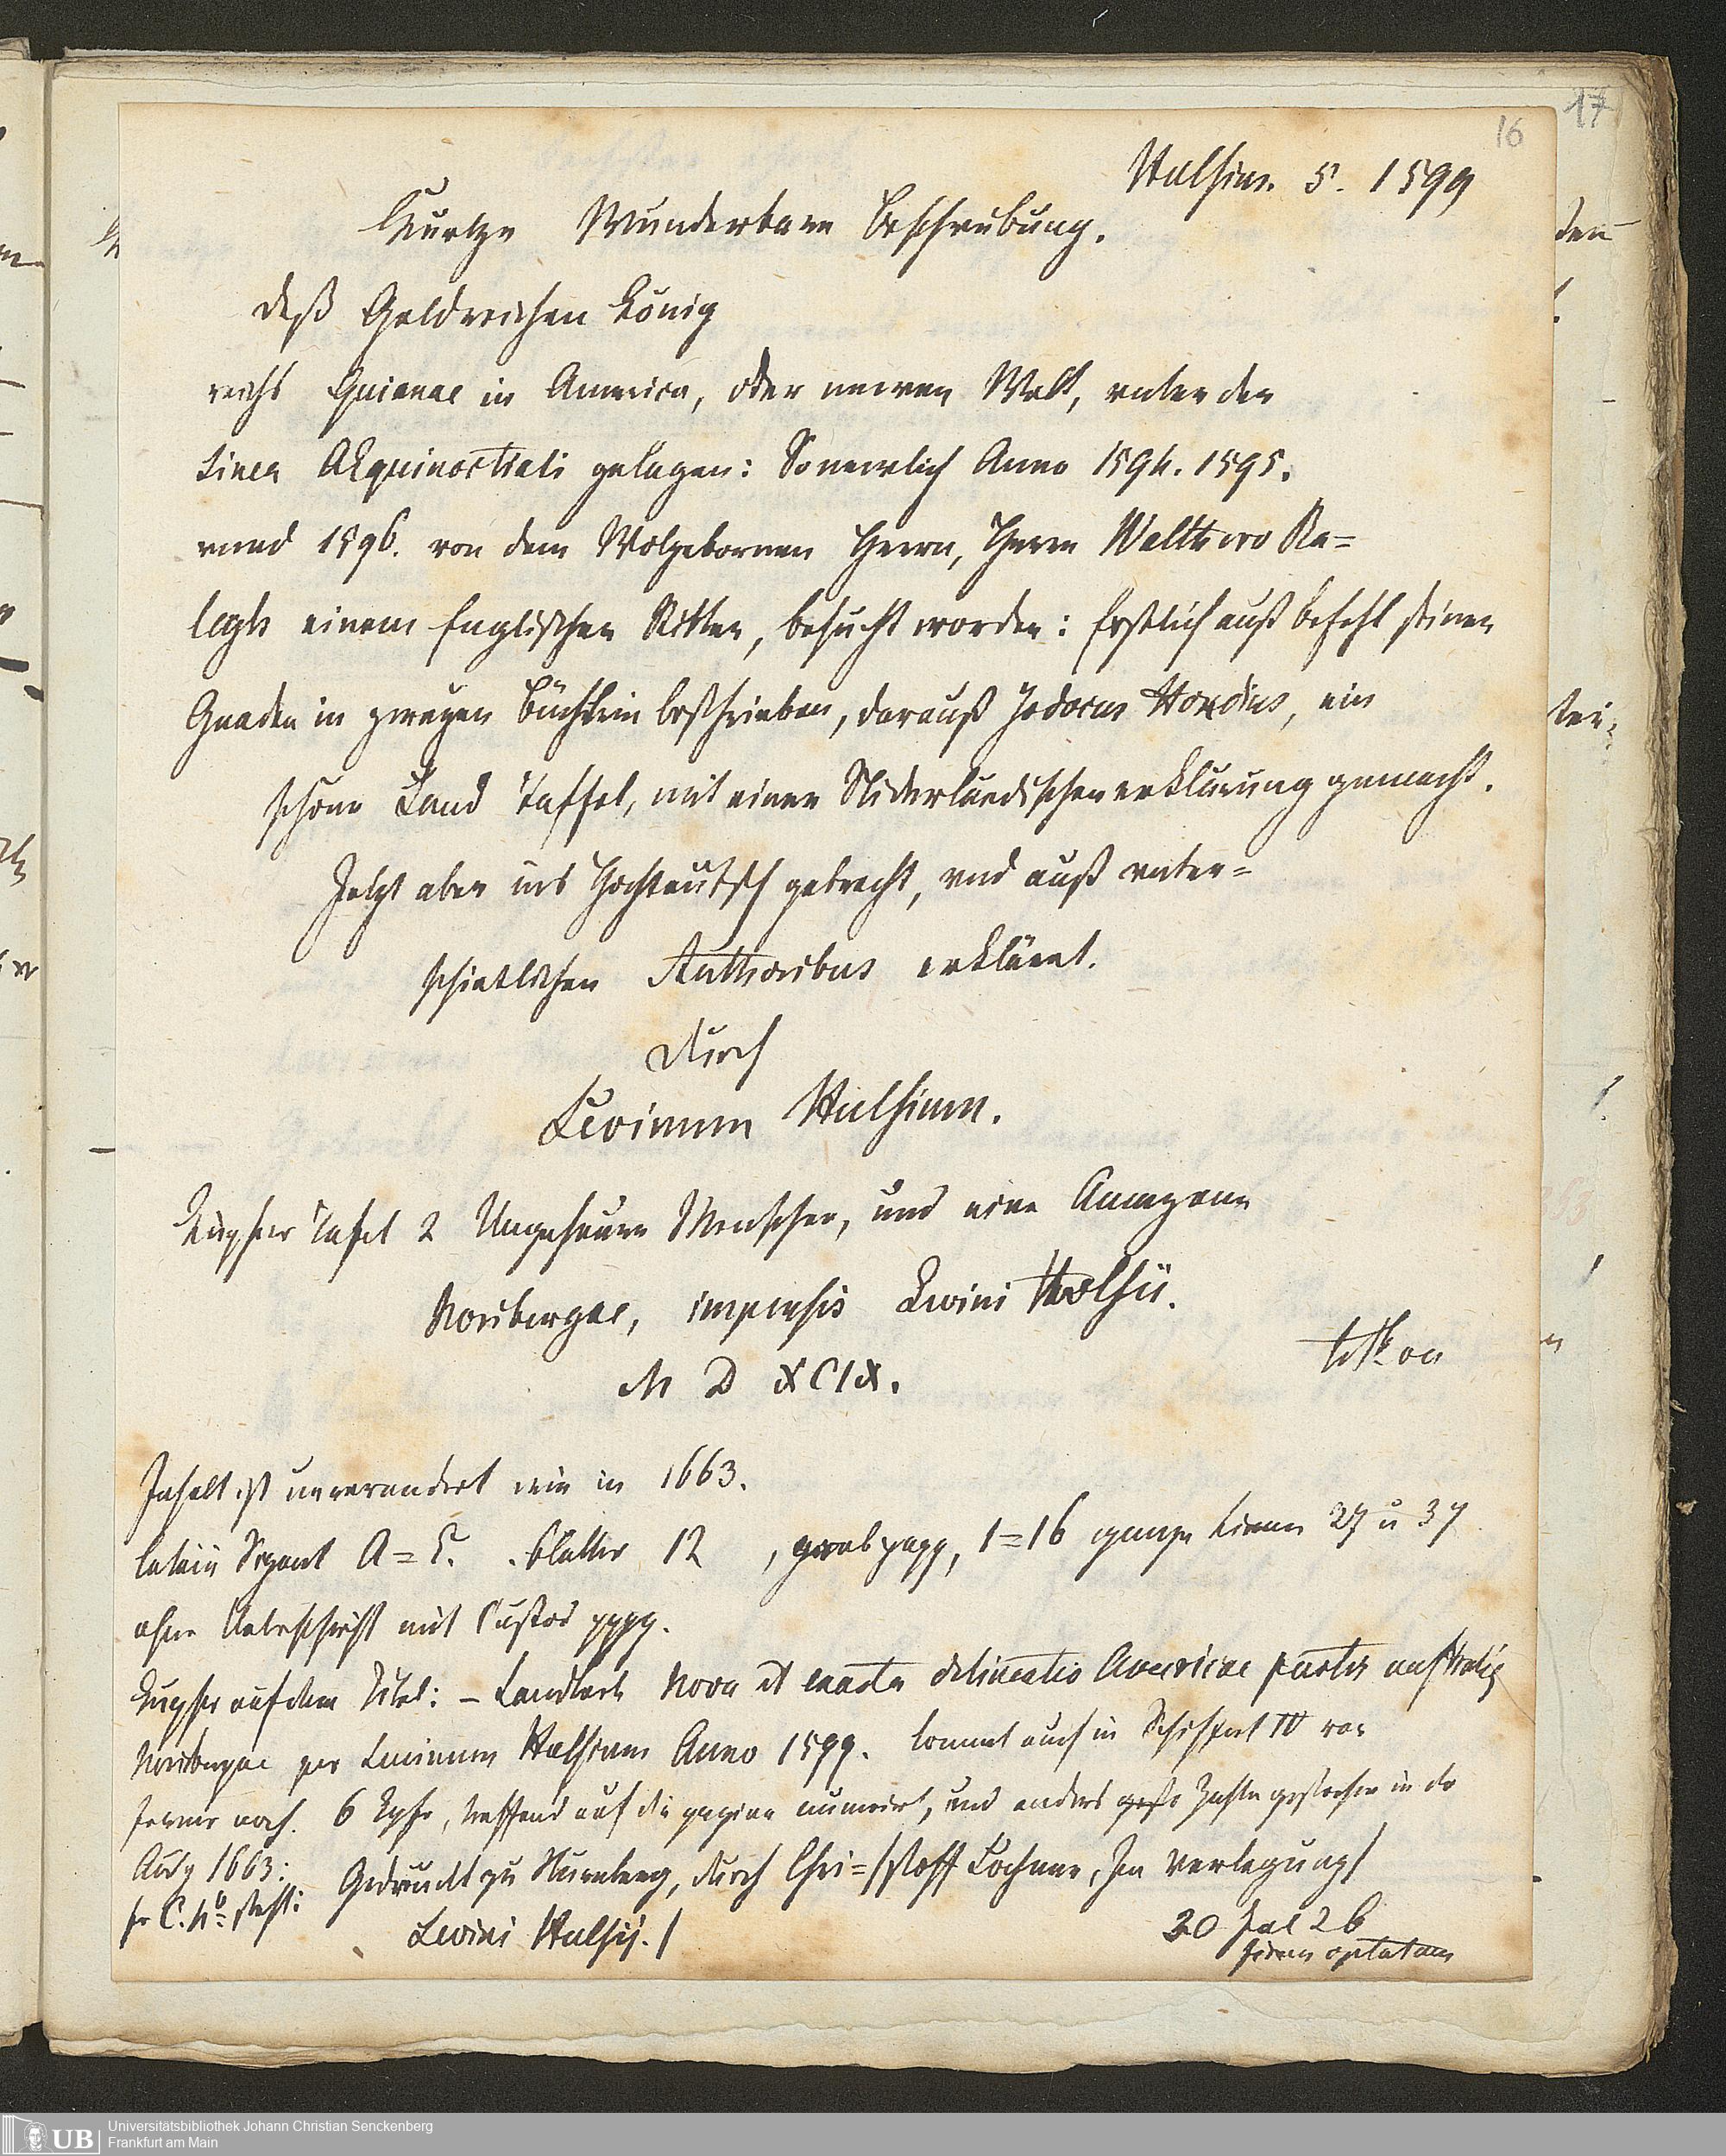 17
16
Hulsius. 5. 1599
Kurtze Wunderbare Beschreibung.
deß Goldreichen König
reichs Guianae in America, oder newen Welt, vnter der
Linea AEquinoctiali gelegen: So newlich Anno 1594. 1595.
vnnd 1596. von dem Wolgebornen Herrn, Herrn Walthero Ra=
legh einem Englischen Ritter, besucht worden: Erstlich auß befehl seiner
Gnaden in zweyen Büchlein beschrieben, darauß Jodocus Hondius, ein
schöne Land Taffel, mit einer Niderländischen erklärung gemacht.
Jetzt aber ins Hochteutsch gebracht, vnd auß vnter=
schietlichen Authoribus erkläret.
durch
Levinum Hulsium.
Kupfer Tafel 2 Ungeheure Menschen, und eine Amazone
Noribergae, impensis Levini Hulsii.
M D XCIX.
Inhalt ist unverändert wie in 1663.
Blätter 12 , 1=16 ganze Linien 27 u 37
ohne Ueberschrift mit Custos
Kupfer auf dem Titel: – Landkarte Nova et exacta delineatio Americae partis australis
Noribergae per Levinum Hulsium Anno 1599. kommt auch in Schiffart IV vor
ferner noch. 6 Kpfr, treffend auf die pagina numerirt, und anders gestochen in der
Ausg 1663:
Gedruckt zu Nürnberg, durch Chri=/stoff Lochner, In Verlegung/
Levini Hulsij. /
20 Jul 26
optatam
den
Universitätsbibliothek Johann Christian Senckenberg
Frankfurt am Main
UB